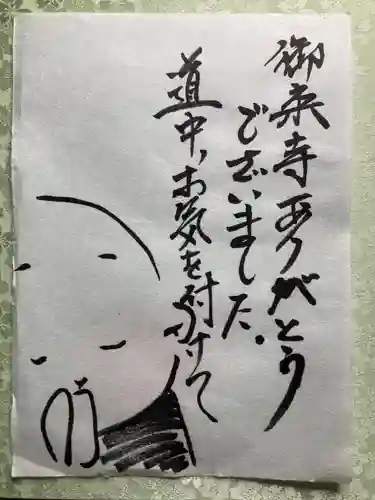 御来寺ありがとう
ございました。
道中、お気を付けて